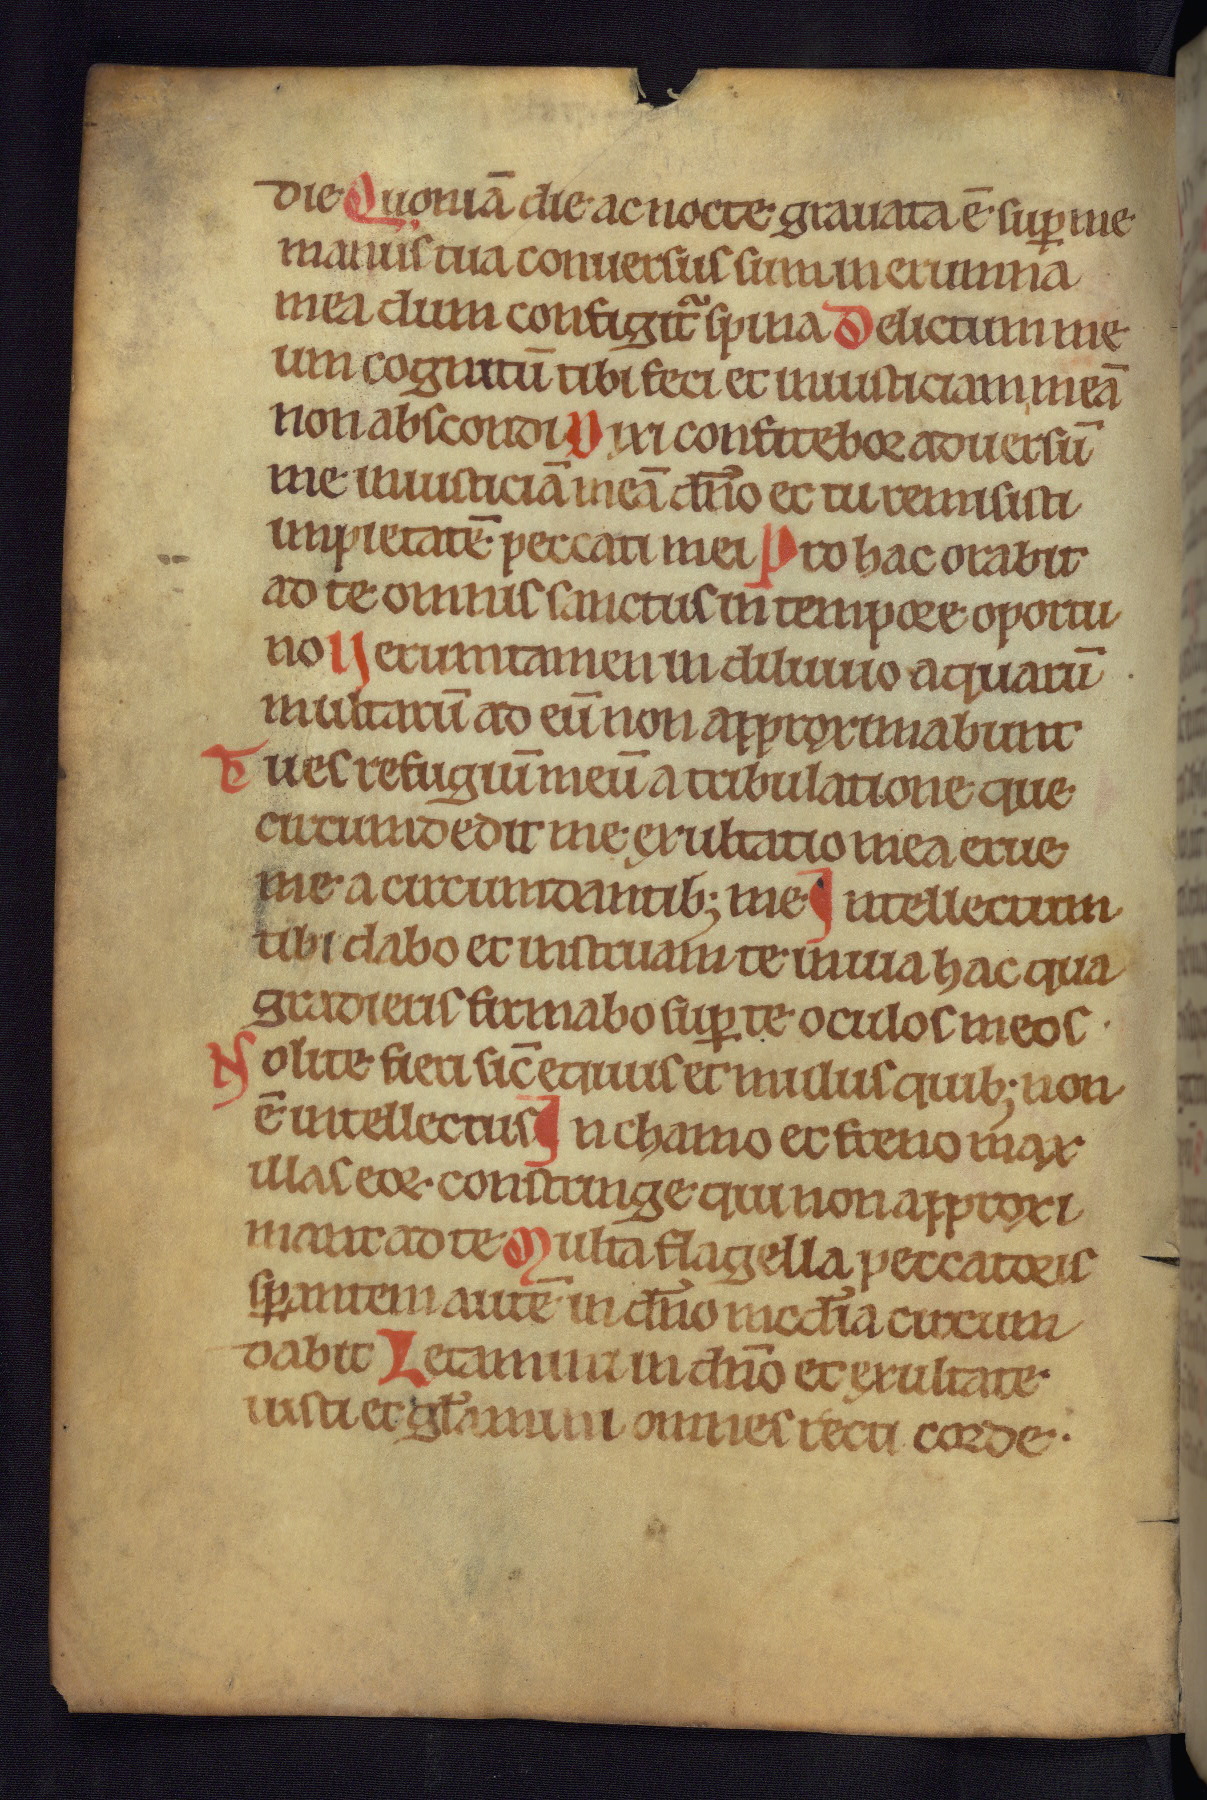 die Quoniā die ac nocte grauata ē sup̄ me
manus tua conuersus sum in erumna
mea dum configit᷑ spina Delictum me
um cognitū tibi feci et iniusticiam meā
non abscondi Dixi confitebor aduersū
me iniusticiā meā dn̄o et tu remisisti
impietatē peccati mei Pro hac orabit
ad te omnis sanctus in tempore oportu
no Veruntamen in diluuio aquarū
multarū ad eū non approximabunt
Tu es refugiū meū a tribulatione que
circumdedit me exultatio mea erue
me a circumdantib; me Intellectum
tibi dabo et instruam te in uia hac qua
gradieris firmabo sup̄ te oculos meos.
Nolite fieri sic̄ equus et mulus quib; non
ē intellectus In chamo et freno max
illas eoꝝ constringe qui non approxi
mant ad te Multa flagella peccatoris
sꝑantem autē in dn̄o mcd̄ia circum
dabit Letamini in dn̄o et exultate
iusti et gl̄amini omnes recti corde.